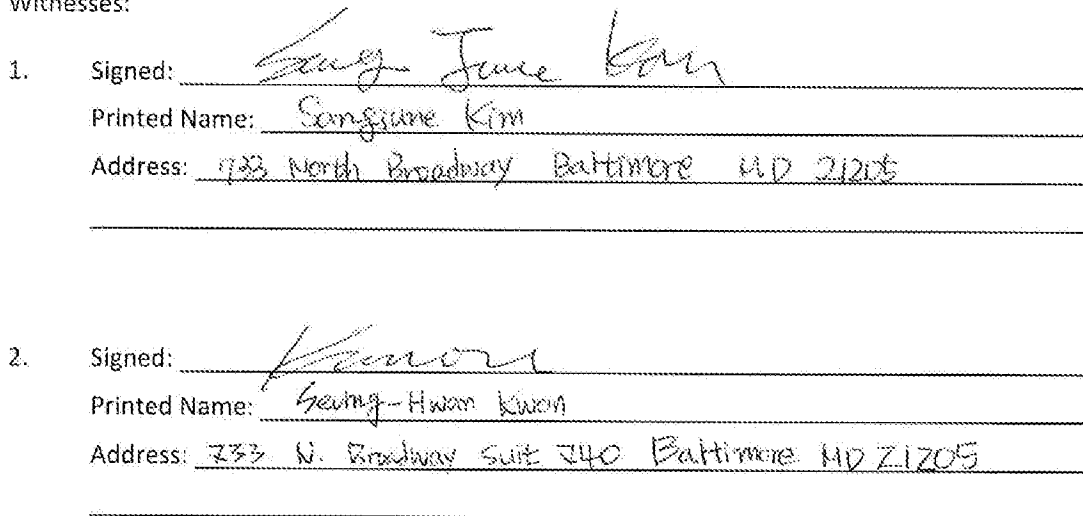 Witnesses:
1. Signed: Sang June Kim
Printed Name: Sangjune Kim
Address: 733 North Broadway Baltimore MD 21205
2. Signed: Kwon
Printed Name: Seung-Hwan Kwon
Address: 733 N. Broadway Suit 740 Baltimore MD 21205